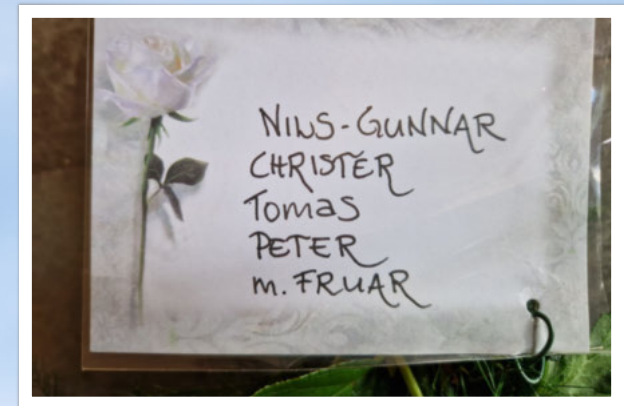 NILS-GUNNAR
CHRISTER
Tomas
PETER
m. FRUAR